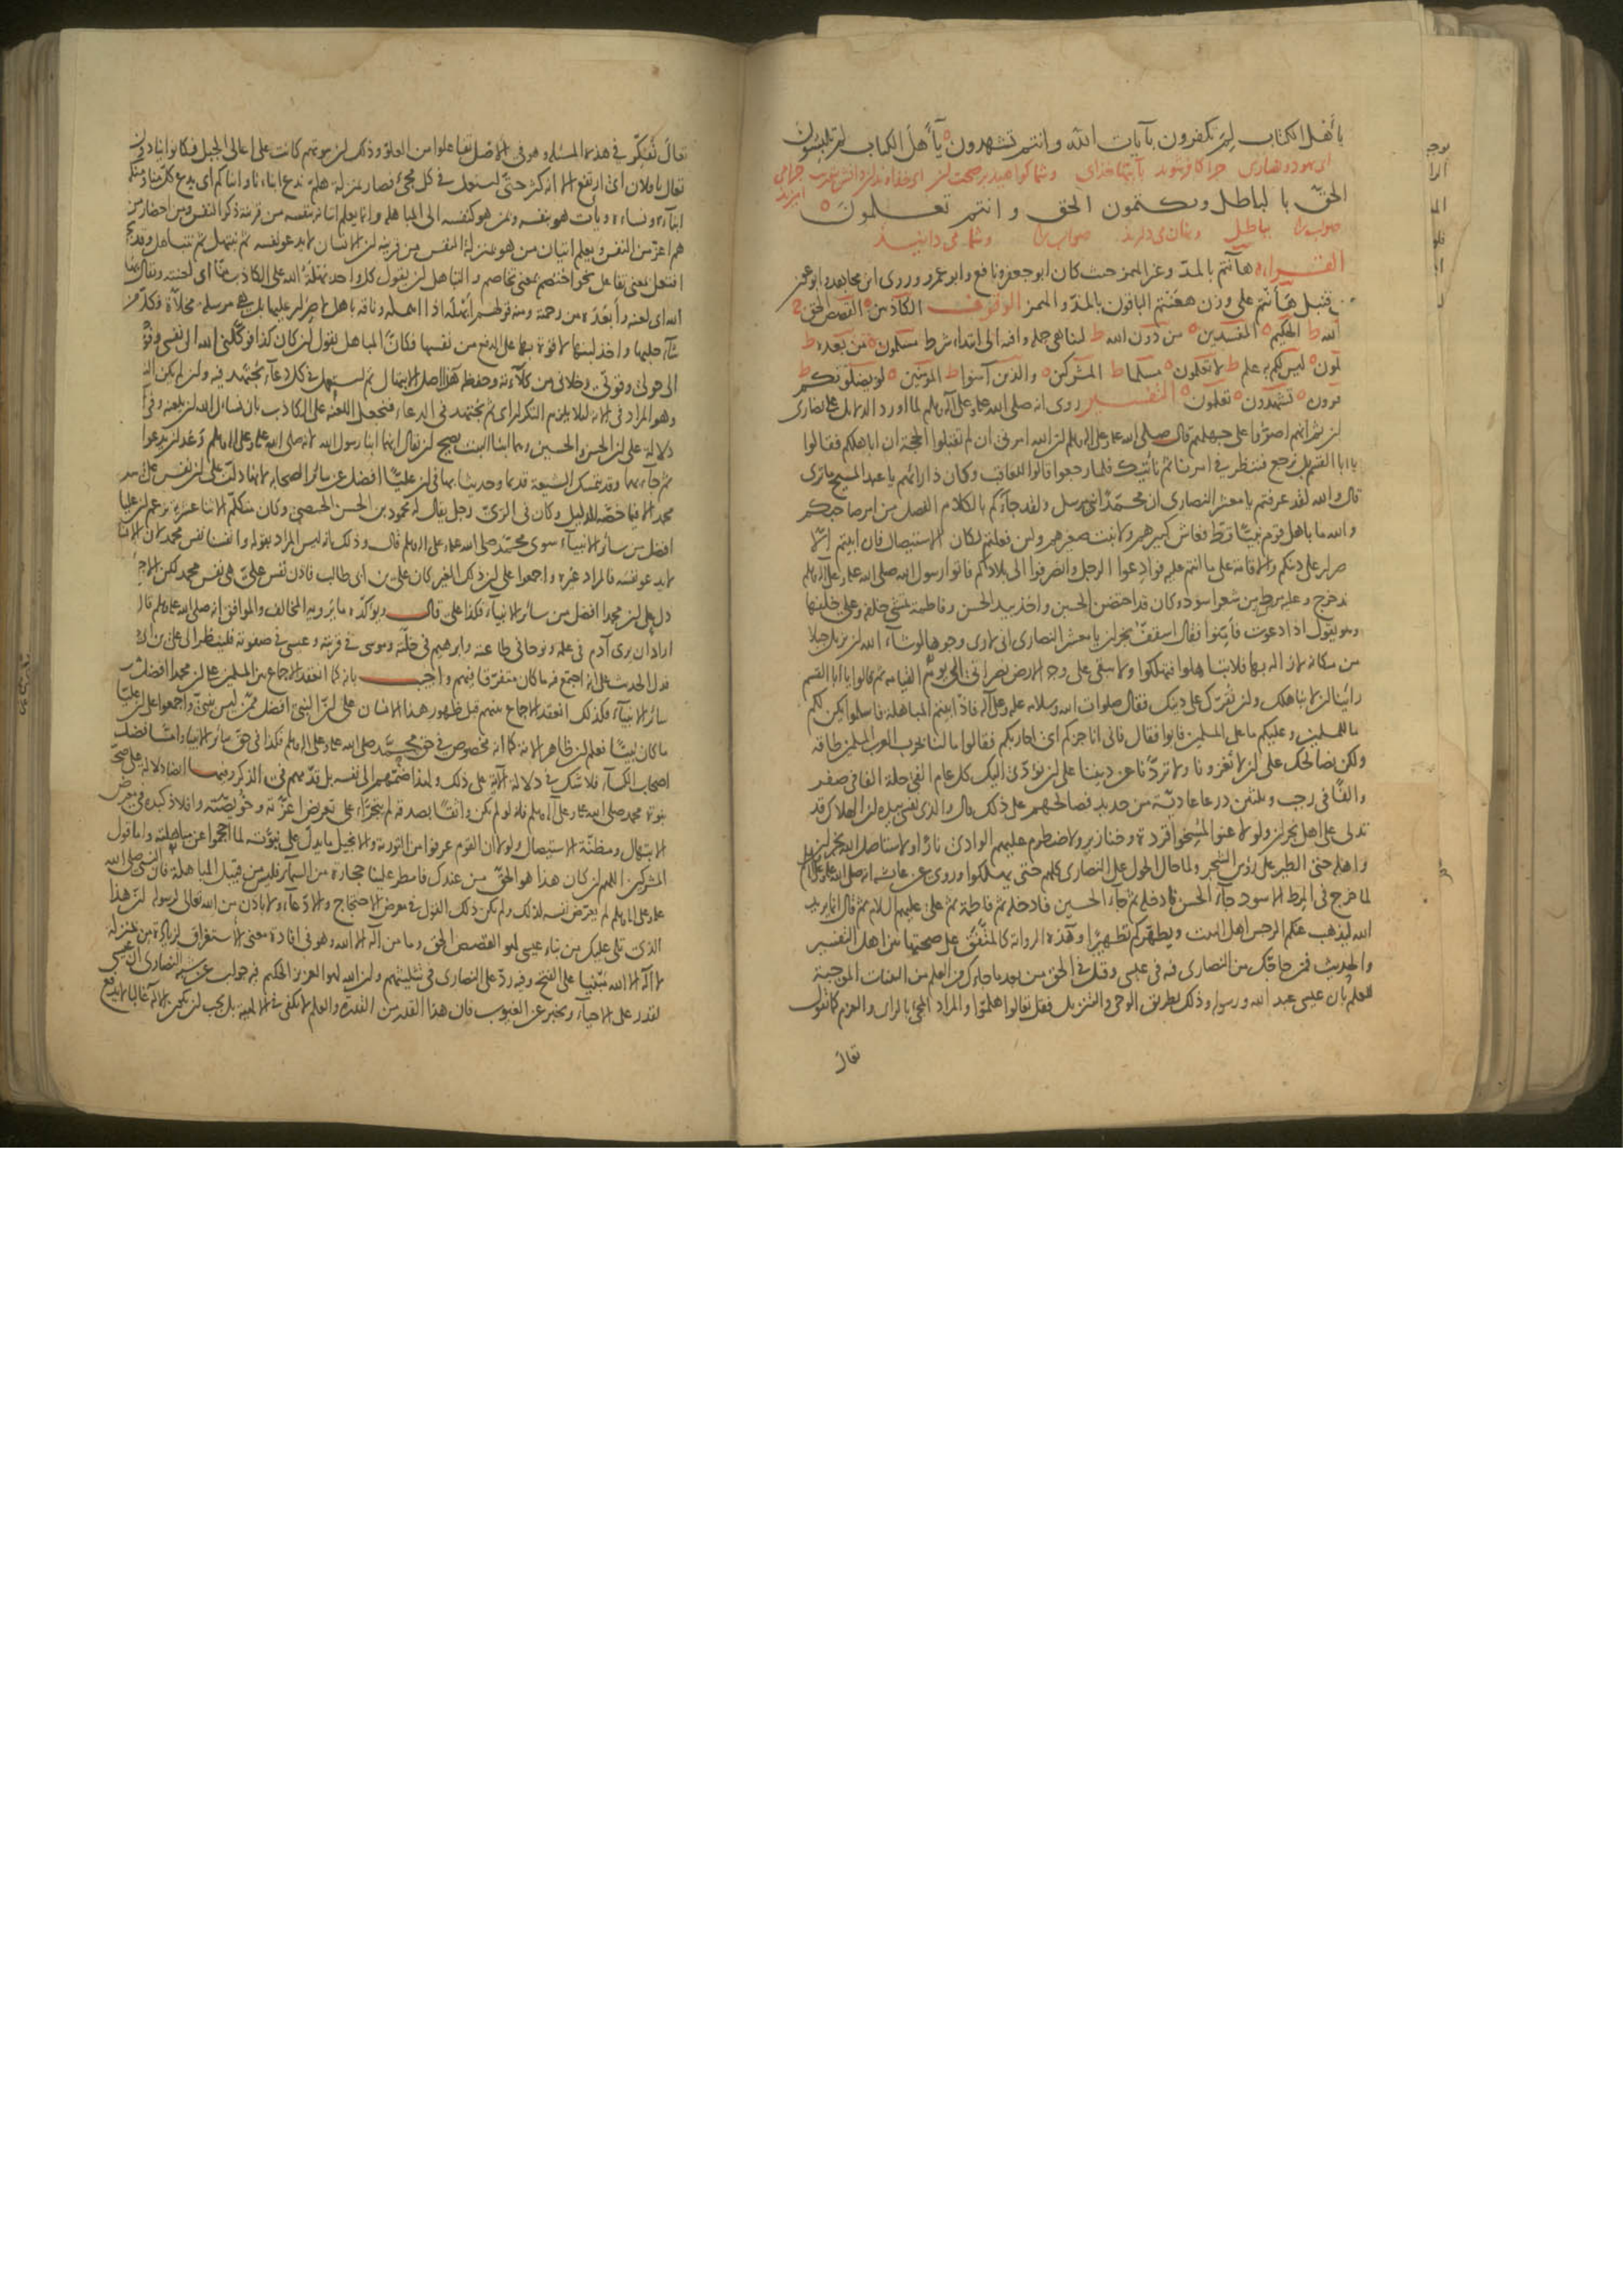 يا أهل الكتاب لم تكفرون بآيات الله وانتم تشهدون يا أهل الكتاب لم تلبسون
اى جهودو نصارى چرا كافر شويد بآيتهاء خداى وشما كواهيد بر صحت
الحق بالباطل وتكتمون الحق وانتم تعلمون
بباطل وشما مى دانيد
القراءه هاأنتم بالمد وغير الهمز حيث كان ابو جعفر ونافع وابو عمرو وروى ابن مجاهد وابو عون
عن قنبل هأنتم على وزن هعنتم الباقون بالمد والهمز الوقوف الكاذبين القصص الحق ج
الله ط الحكيم بالمفسدين من دون الله ط لتناهى جملة وافيه الى ابتداء شرط مسلمون من بعده ط
لمون ليس لكم به علم ط لا تعلمون مسلما ط المشركين والذين آمنوا ط المؤمنين لو يضلونكم ط
تشهدون تعلمون التفسير روى انه صلى الله عليه وعلى آله وسلم لما اورد الدلائل على نصارى
نجران ثم انهم اصروا على جهلهم قال صلى الله عليه وعلى اله وسلم ان الله امرنى ان لم تقبلوا الحجة ان اباهلكم فقالوا
يا ابا القسم بل نرجع فننظر فى امرنا ثم نأتيك فلما رجعوا قالوا للعاقب وكان ذا رائهم يا عبد المسيح ما ترى
قال والله لقد عرفتم يا معشر النصارى ان محمدا نبى مرسل ولقد جاءكم بالكلام الفصل من امر صاحبكم
والله ما باهل قوم نبيا قط فعاش كبيرهم ولا نبت صغيرهم ولئن فعلتم لكان الاستيصال فان ابيتم الا
الاصرار على دينكم والاقامة على ما انتم عليه فوادعوا الرجل وانصرفوا الى بلادكم فاتوا رسول الله صلى الله عليه وعلى آله وسلم
قد خرج وعليه مرط من شعر اسود وكان قد احتضن الحسين واخذ بيد الحسن وفاطمة تمشى خلفه وعلى خلفها
وهو يقول اذا دعوت فأمنوا فقال اسقف نجران يا معشر النصارى انى لارى وجوها لو شاء الله ان يزيل جبلا
من مكانه لازاله بها فلا تباهلوا فتهلكوا ولا يبقى على وجه الارض نصرانى الى يوم القيامه ثم قالوا يا ابا القسم
رأينا ان لا نباهلك وان نقرك على دينك فقال صلوات الله وسلامه عليه وعلى آله فاذا ابيتم المباهلة فاسلموا يكن لكم
ما للمسلمين وعليكم ما على المسلمين فابوا فقال فانى اناجزكم اى احاربكم فقالوا ما لنا بحرب العرب المسلمين طاقة
ولكن نصالحك على ان لا تغزونا ولا تردنا عن ديننا على ان نؤدى اليك كل عام الفى حلة الفا فى صفر
والفا فى رجب وثلثين درعا عادية من حديد فصالحهم على ذلك قال والذى نفسى بيده ان الهلاك قد
تدلى على اهل نجران ولو لاعنوا لمسخوا قردة وخنازير ولاضطرم عليهم الوادى نارا ولاستاصل الله نجران
واهله حتى الطير على رؤس الشجر ولما حال الحول على النصارى كلهم حتى يهلكوا وروى عن عائشة انه صلى الله عليه وعلى آله وسلم
لما خرج فى المرط الاسود جاء الحسن فادخله ثم جاء الحسين فادخله ثم فاطمة ثم على عليهم السلام ثم قال انما يريد
الله ليذهب عنكم الرجس اهل البيت ويطهركم تطهيرا وهذه الرواية كالمتفق على صحتها بين اهل التفسير
والحديث فمن حاجك من النصارى فيه فى عيسى وقيل فى الحق من بعد ما جاءك من العلم من البينات الموجبة
للعلم بان عيسى عبد الله ورسوله وذلك بطريق الوحى والتنزيل فقل تعالوا هلموا والمراد المجئ بالراى والعزم كما تقول
تعال
تعال نفكر فى هذه المسئلة وهو فى الاصل تفاعلوا من العلو وذلك ان بيوتهم كانت على اعالى الجبل فكانوا ينادون
تعال يا فلان اى ارتفع الا انه كثر حتى استعمل فى كل مجئ فصار بمنزلة هلم ندع ابناءنا وابناكم اى يدع كل منا ومنكم
ابناءه ونساءه ويأت هو بنفسه وبمن هو كنفسه الى المباهلة وانما يعلم اتيانه بنفسه من قرينة ذكر النفس ومن احضار من
هم اعز من النفس ويعلم اتيان من هو بمنزلة النفس من قرينة ان الانسان لا يدعو نفسه ثم نبتهل ثم نتباهل وقد يجئ
افتعل بمعنى تفاعل نحو اختصم بمعنى تخاصم والتباهل ان يقول كل واحد بهلة الله على الكاذب منا اى لعنته
الله اى لعنه وأبعده من رحمته ومنه قولهم أبهله اذا اهمله وناقة باهل لا صرار عليها بل هى مرسلة مخلاة فكل من
شاء حلبها واخذ لبنها لا قوة بها على الدفع من نفسها فكان المباهل يقول ان كان كذا فوكلنى الله الى نفسى وفوض
الى حولى وقوتى وخلانى من كلاءته وحفظه هذا اصل الابتهال ثم استعمل فى كل دعاء يجتهد فيه وان لم يكن التعانا
وهو المراد فى الاية لئلا يلزم التكرار اى ثم نجتهد فى الدعاء فنجعل اللعنة على الكاذب بان نسال الله ان يلعنه وفى الاية
دلالة على ان الحسن والحسين وهما ابنا البنت يصح ان يقال انهما ابنا رسول الله لانه صلى الله عليه وعلى اله وسلم وعد ان يدعو ابناءه
ثم جاء بهما وقد تمسك الشيعة قديما وحديثا بها فى ان عليا افضل من سائر الصحابة لانها دلت على ان نفس على مثل نفس
محمد الا فيما خصه الدليل وكان فى الرى رجل يقال له محمود بن الحسن الحمصى وكان متكلم الاثنا عشرية يزعم ان عليا
افضل من سائر الانبياء سوى محمد صلى الله عليه وعلى اله وسلم قال وذلك انه ليس المراد بقوله وانفسنا نفس محمد لان الانسان
لا يدعو نفسه فالمراد غيره واجمعوا على ان ذلك الغير كان على بن ابى طالب فاذن نفس على هى نفس محمد لكن الاجماع
دل على ان محمدا افضل من سائر الانبياء فكذا على قال ويؤكده ما يرويه المخالف والموافق انه صلى الله عليه وسلم قال من
اراد ان يرى آدم فى علمه ونوحا فى طاعته وابرهيم فى خلته وموسى فى قربته وعيسى فى صفوته فلينظر الى على بن ابى طالب
فدل الحديث على انه اجتمع فيه ما كان متفرقا فيهم واجيب بانه كما انعقد الاجماع بين المسلمين على ان محمدا افضل من
سائر الانبياء فكذلك انعقد الاجماع بينهم قبل ظهور هذا الانسان على ان النبى افضل ممن ليس بنبى واجمعوا على ان عليا
ما كان نبيا فعلم ان ظاهر الاية كما انه مخصوص فى حق محمد صلى الله عليه وعلى اله وسلم فكذا فى حق سائر الانبياء واما فضل
اصحاب الكساء فلا شك فى دلالة الآية على ذلك ولهذا ضمهم الى نفسه بل قدمهم فى الذكر وفيها ايضا دلالة على صحة
نبوة محمد صلى الله عليه وعلى آله وسلم فانه لو لم يكن واثقا بصدقه لم يتجرأ على تعريض اعزته وخويصته وافلاذ كبده فى معرض
الابتهال ومظنة الاستيصال ولولا ان القوم عرفوا من التورية والانجيل ما يدل على نبوته لما احجموا عن مباهلته واما قول
المشركين اللهم ان كان هذا هو الحق من عندك فامطر علينا حجارة من السماء فليس من قبيل المباهلة فان النبى صلى الله
عليه وعلى اله وسلم لم يعرض نفسه لذلك ولم يكن ذلك القول فى معرض الاحتجاج والادعاء ولا باذن من الله تعالى لرسوله ان هذا
الذى تلى عليك من نباء عيسى لهو القصص الحق وما من اله الا الله وهو فى افادة معنى الاستغراق لزيادة من بمنزلة
لا اله الا الله مبنيا على الفتح وفيه رد على النصارى فى تثليثهم وان الله لهو العزيز الحكيم فيه جواب عن شبه النصارى ان عيسى
يقدر على الاحياء ويخبر عن الغيوب فان هذا القدر من القدرة والعلم لا يكفى فى الالهية بل يجب ان يكون الاله غالبا لا يدفع